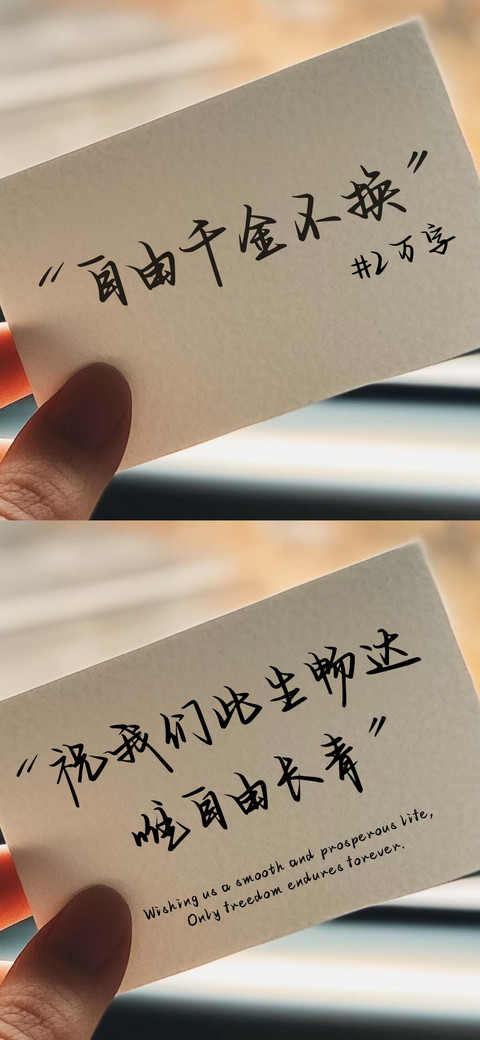 “自由千金不换”
#2万字
“祝我们此生畅达
唯自由长青”
Wishing us a smooth and prosperous life,
Only freedom endures forever.